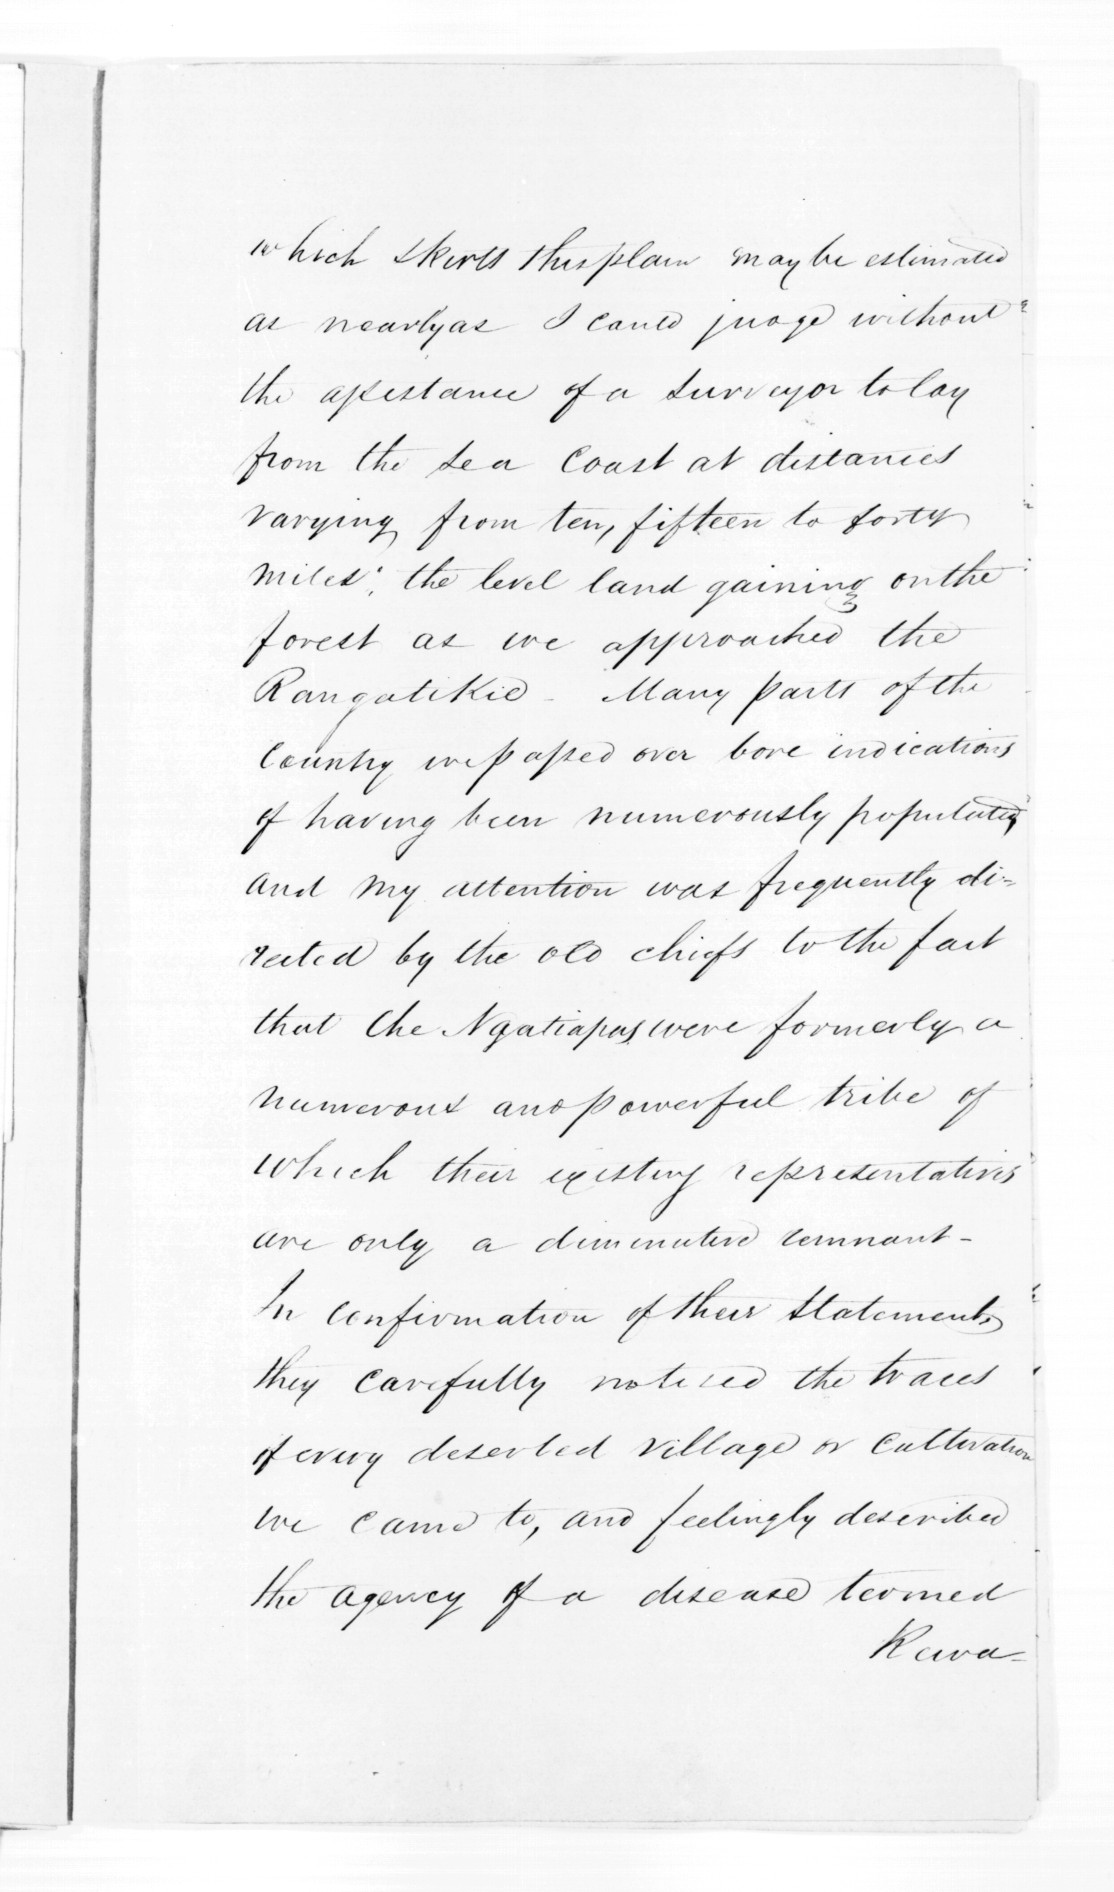 which skirts this plain may be estimated
as nearly as I could judge without
the assistance of a Surveyor to lay
from the Sea Coast at distances
varying from ten, fifteen to forty
miles; the level land gaining on the
forest as we approached the
Rangatikie - Many parts of the
Country we passed over bore indications
of having been numerously populated,
and my attention was frequently di=
rected by the old chiefs to the fact
that the Ngatiapas were formerly a
numerous and powerful tribe of
which their existing representatives
are only a diminutive remnant -
In confirmation of their statements,
they carefully noticed the traces
of every deserted village or cultivation
we came to, and feelingly described
the agency of a disease termed
Rewa-